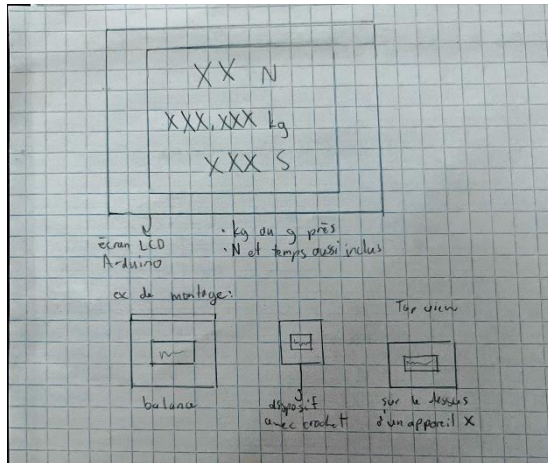 XX N
XXX,XXX kg
XXX S
écran LCD
Arduino
• kg au g près
• N et temps aussi inclus
ex de montage:
Top view
balance
dispositif
avec crochet
sur le dessus
d'un appareil X